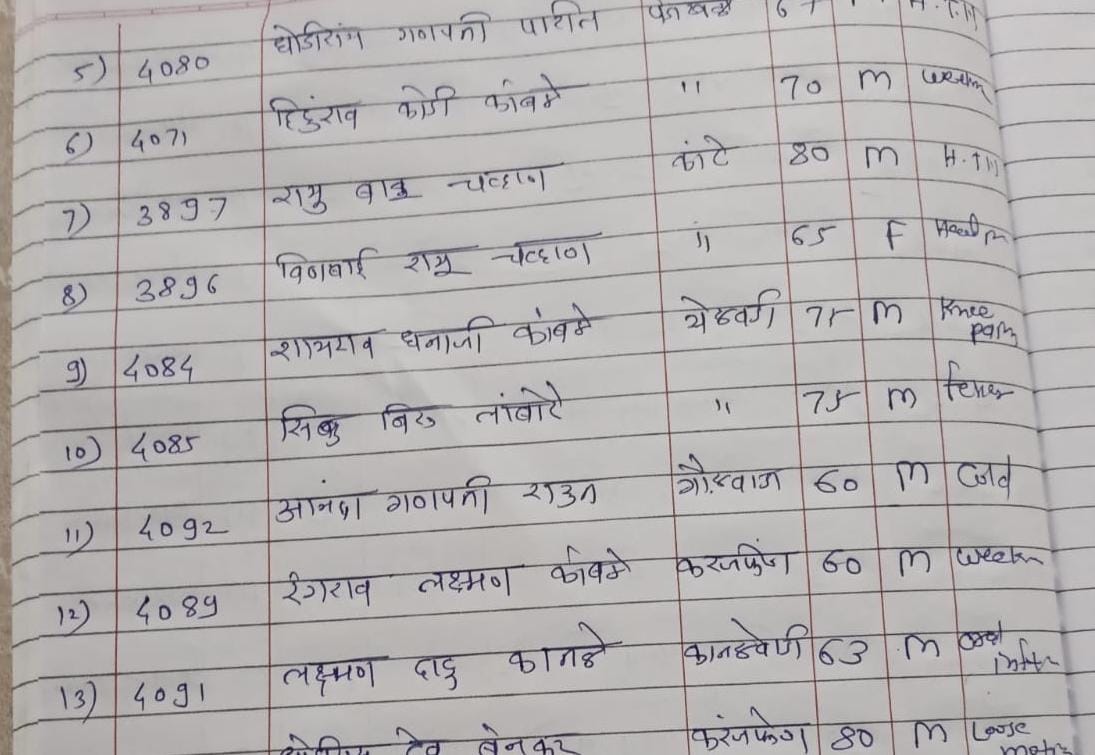 5) 4080 धोंडीराम गणपती पाटील 67 H.T.N
6) 4071 हिंदुराव कोंडी कांबळे " 70 M weekn
7) 3897 रामु बाबु चव्हाण कांटे 80 M H.T.N
8) 3896 विठाबाई रामु चव्हाण " 65 F
9) 4084 शामराव धनाजी कांबळे येळवडी 75 M Knee pain
10) 4085 सिधु बिरु लांबोरे " 75 M fever
11) 4092 आनंदा गणपती राऊत 60 M Cold
12) 4089 रंगराव लक्ष्मण कांबळे करंजफेण 60 M weekn
13) 4091 लक्ष्मण दादु कानडे 63 M
करंजफेण 80 M Loose